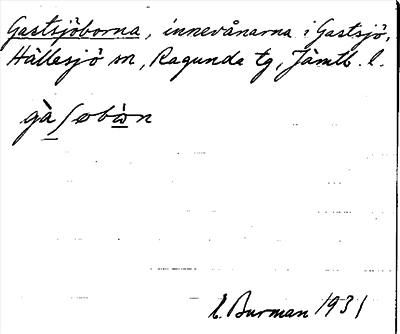 Gastsjöborna, innevånarna i Gastsjö,
Hällesjö sn, Ragunda tg, Jämtl. l.
gàʃøbòn
E. Burman 1931